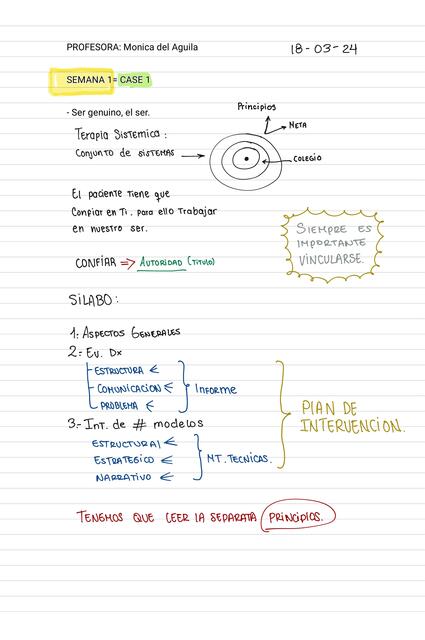 PROFESORA: Monica del Aguila
18-03-24
SEMANA 1= CASE 1
- Ser genuino, el ser.
Principios
META
Terapia Sistemica:
Conjunto de SISTEMAS
COLEGIO
El paciente tiene que
Confiar en Ti. para ello Trabajar
en nuestro ser.
SIEMPRE ES
IMPORTANTE
VINCULARSE.
CONFIAR => AUTORIDAD (TITULO)
SILABO:
1: ASPECTOS GENERALES
2= Ev. Dx
ESTRUCTURA
COMUNICACION
PROBLEMA
Informe
3.- Int. de # modelos
ESTRUCTURAL
ESTRATEGICO
NARRATIVO
MT. TECNICAS.
PLAN DE
INTERVENCION.
TENEMOS QUE LEER LA SEPARATA PRINCIPIOS.